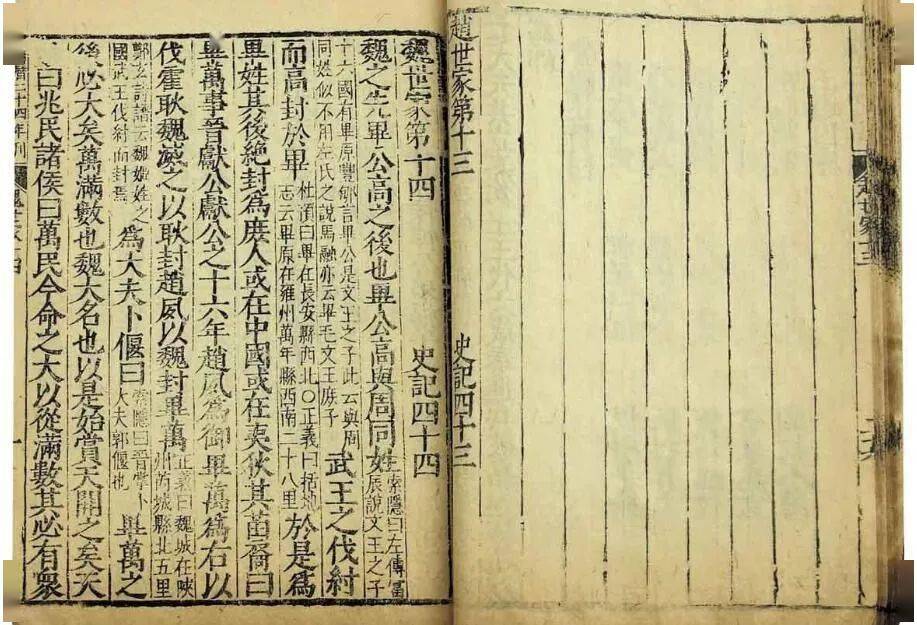 趙世家十三
趙世家第十三 史記四十三
魏世家第十四 史記四十四
魏之先畢公高之後也畢公高與周同姓
索隱曰左傳富
辰說文王之子
十六國有畢原豐郇言畢公是文王之子此云與周
同姓似不用左氏之說馬融亦云畢毛文王庶子
武王之伐紂
而高封於畢
杜預曰畢在長安縣西北○正義曰括地
志云畢原在雍州萬年縣西南二十八里
於是爲
畢姓其後絕封爲庶人或在中國或在夷狄其苗裔曰
畢萬事晉獻公獻公之十六年趙夙爲御畢萬爲右以
伐霍耿魏滅之以耿封趙夙以魏封畢萬
正義曰魏城在陝
州芮城縣北五里
鄭玄詩譜云魏姬姓之
國武王伐紂而封焉
爲大夫卜偃曰
索隱曰晉掌卜
大夫郭偃也
畢萬之
後必大矣萬滿數也魏大名也以是始賞天開之矣天
曰兆民諸侯曰萬民今命之大以從滿數其必有眾
二十四年刊 魏世家十四 一